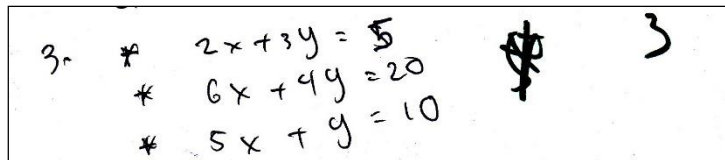 3. * 2x + 3y = 5 3
* 6x + 4y = 20
* 5x + y = 10